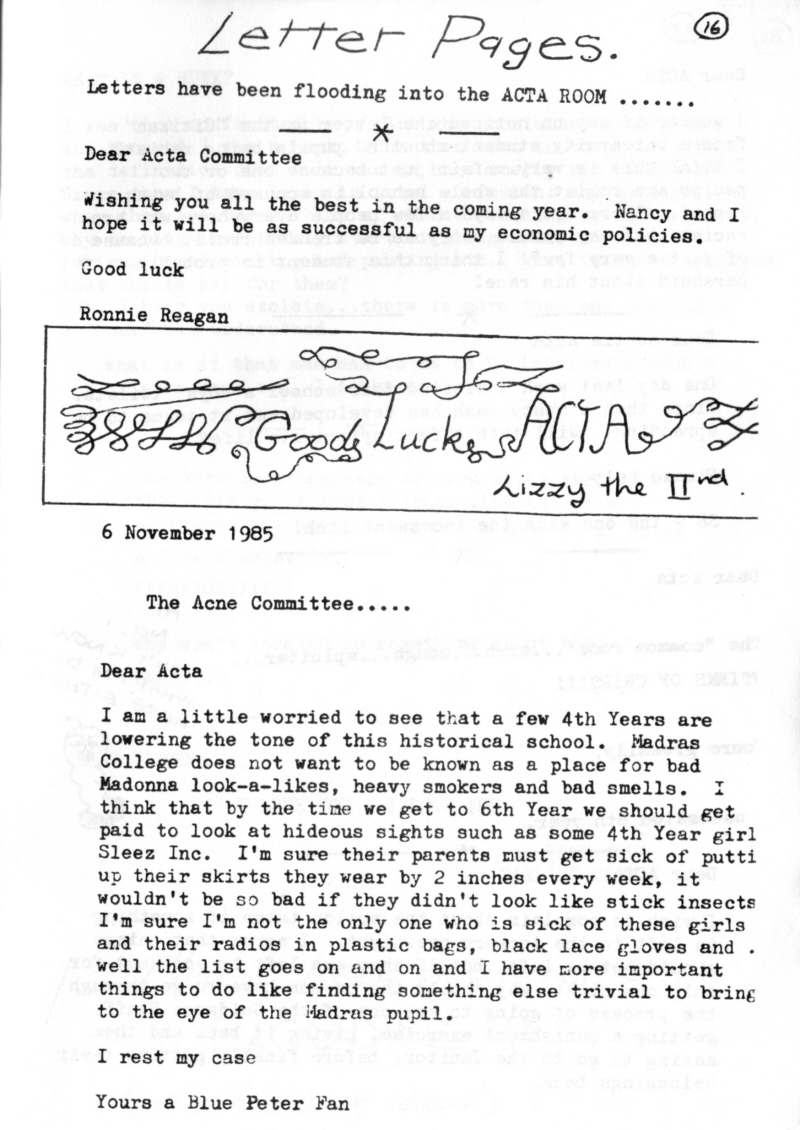 Letter Pages.
16
Letters have been flooding into the ACTA ROOM .......
Dear Acta Committee
Wishing you all the best in the coming year. Nancy and I
hope it will be as successful as my economic policies.
Good luck
Ronnie Reagan
Good Luck ACTA
Lizzy the IInd.
6 November 1985
The Acne Committee.....
Dear Acta
I am a little worried to see that a few 4th Years are
lowering the tone of this historical school. Madras
College does not want to be known as a place for bad
Madonna look-a-likes, heavy smokers and bad smells. I
think that by the time we get to 6th Year we should get
paid to look at hideous sights such as some 4th Year girl
Sleez Inc. I'm sure their parents must get sick of putti
up their skirts they wear by 2 inches every week, it
wouldn't be so bad if they didn't look like stick insects
I'm sure I'm not the only one who is sick of these girls
and their radios in plastic bags, black lace gloves and .
well the list goes on and on and I have more important
things to do like finding something else trivial to bring
to the eye of the Madras pupil.
I rest my case
Yours a Blue Peter Fan